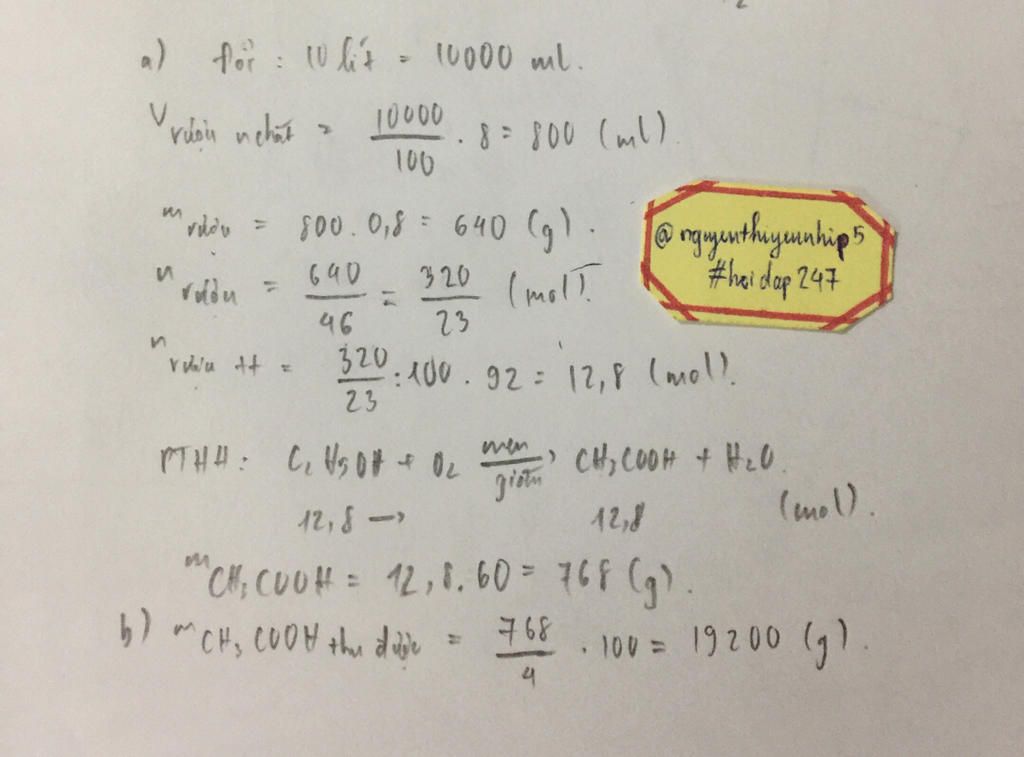 a) Đổi : 10 lít = 10000 ml.
V rượu n chất = 10000/100 . 8 = 800 (ml).
m rượu = 800. 0,8 = 640 (g).
n rượu = 640/46 = 320/23 (mol).
n rượu tt = 320/23 : 100 . 92 = 12,8 (mol).
PTHH: C2H5OH + O2 men giấm → CH3COOH + H2O.
12,8 → 12,8 (mol).
m CH3COOH = 12,8.60 = 768 (g).
b) m CH3COOH thu được = 768/4 . 100 = 19200 (g).
@nguyenthiyennhip5
#hoidap247